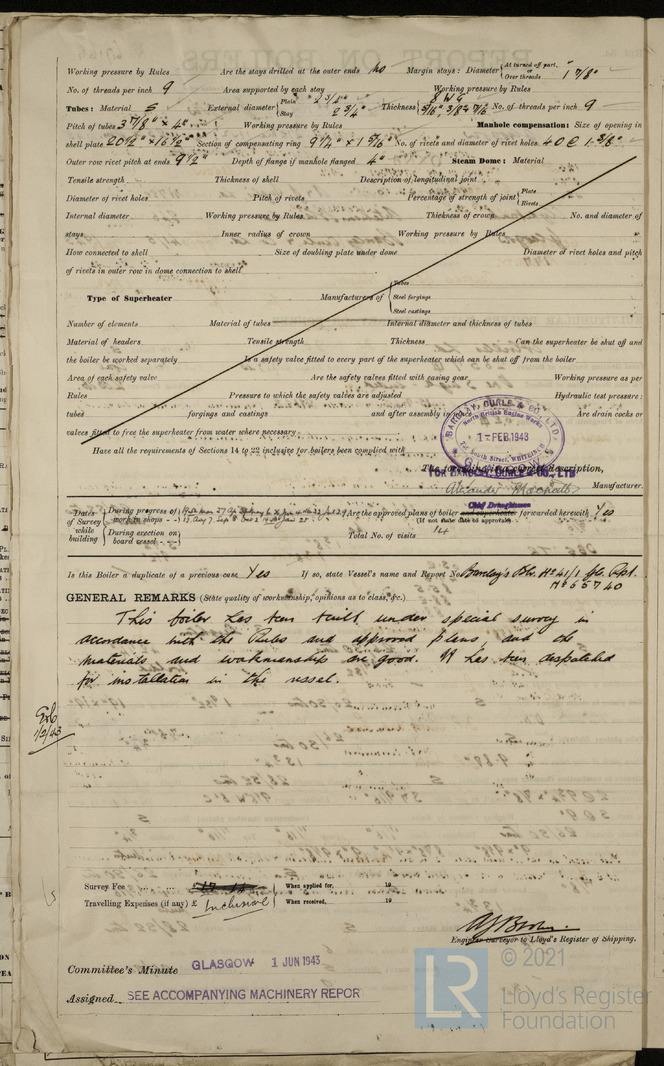 Working pressure by Rules Are the stays drilled at the outer ends No Margin stays: Diameter { At turned off part, or Over threads 1 7/8"
No. of threads per inch 9 Area supported by each stay Working pressure by Rules
Tubes: Material S External diameter { Plain 2 3/4" Stay 2 3/4" Thickness { 8 W G 5/16", 3/8" & 7/16 No. of threads per inch 9
Pitch of tubes 3 7/8" × 4" Working pressure by Rules Manhole compensation: Size of opening in
shell plate 20 1/2" × 16 1/2" Section of compensating ring × 1 5/16" No. of rivets and diameter of rivet holes 40 @ 1 3/8"
Outer row rivet pitch at ends 9 1/2" Depth of flange if manhole flanged 4" Steam Dome: Material
Tensile strength Thickness of shell Description of longitudinal joint
Diameter of rivet holes Pitch of rivets Percentage of strength of joint { Plate Rivets
Internal diameter Working pressure by Rules Thickness of crown No. and diameter of
stays Inner radius of crown Working pressure by Rules
How connected to shell Size of doubling plate under dome Diameter of rivet holes and pitch
of rivets in outer row in dome connection to shell
Type of Superheater Manufacturers of { Tubes Steel forgings Steel castings
Number of elements Material of tubes Internal diameter and thickness of tubes
Material of headers Tensile strength Thickness Can the superheater be shut off and
the boiler be worked separately Is a safety valve fitted to every part of the superheater which can be shut off from the boiler
Area of each safety valve Are the safety valves fitted with easing gear Working pressure as per
Rules Pressure to which the safety valves are adjusted Hydraulic test pressure:
tubes forgings and castings and after assembly in place Are drain cocks or
valves fitted to free the superheater from water where necessary
BARCLAY, CURLE & CO., LTD.
North British Engine Works
1 - FEB 1943
South Street, WHITEINCH
GLASGOW
Have all the requirements of Sections 14 to 22 inclusive for boilers been complied with
The foregoing is a correct description,
FOR BARCLAY, CURLE & CO., LTD
Alexander Manufacturer.
Chief Draughtsman
Dates of Survey while building { During progress of work in shops - - Are the approved plans of boiler and superheater forwarded herewith Yes
(If not state date of approval)
During erection on board vessel - - - Total No. of visits 14
Is this Boiler a duplicate of a previous case Yes If so, state Vessel's name and Report No. Barclay's Blr. No 41/1 Rpt.
No 65740
GENERAL REMARKS (State quality of workmanship, opinions as to class, &c.)
This boiler has been built under special survey in
accordance with the Rules and approved plans, and the
materials and workmanship are good. It has been despatched
for installation in the vessel.
1/2/43
Survey Fee ... ... ... £ When applied for, 19
Travelling Expenses (if any) £ Inclusive When received, 19
Engineer Surveyor to Lloyd's Register of Shipping.
Committee's Minute GLASGOW 1 JUN 1943
Assigned SEE ACCOMPANYING MACHINERY REPOR
LR
© 2021
Lloyd's Register
Foundation